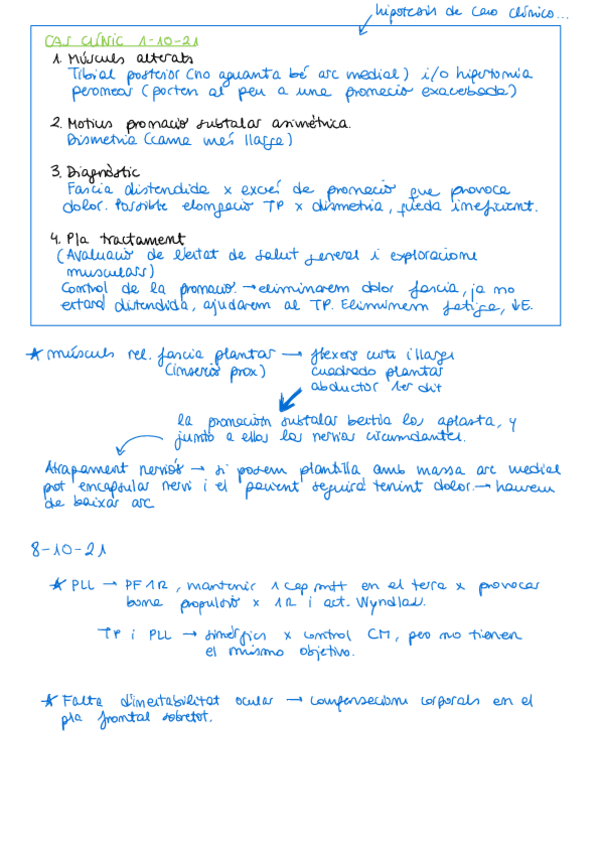 hipotesis de caso clínico...
CAS CLÍNIC 1-10-21
1. Músculs alterats
Tibial posterior (no aguanta bé arc medial) i/o hipertonia
peroneos (porten al peu a una pronació exacerbada)
2. Motius pronació subtalar asimètrica.
Dismetria (came més llarga)
3. Diagnòstic
Fascia distendida x excés de pronació que provoca
dolor. Possible elongació TP x dismetria, queda ineficient.
4. Pla tractament
(Avaluació de l'estat de salut general i exploracions
musculars)
Control de la pronació → eliminarem dolor fascia, ja no
estará distendida, ajudarem al TP. Eliminem fatiga, ↓E.
★ músculs rel. fascia plantar → flexors curts i llargs
(inserció prox) cuadrado plantar
abductor 1er dit
la pronación subtalar bestia los aplasta, y
junto a ellos los nervios circundantes.
Atrapament nerviós → si posem plantilla amb massa arc medial
pot encapsular nervi i el pacient seguirá tenint dolor. → haurem
de baixar arc
8-10-21
★ PLL → PF 1R, mantenir 1 cap mtt en el terra x provocar
bona propulsió x 1R i act. Wyndlas.
TP i PLL → sinérgics x control CM, pero no tienen
el mismo objetivo.
★ Falta d'inestabilitat ocular → compensacions corporals en el
pla frontal sobretot.